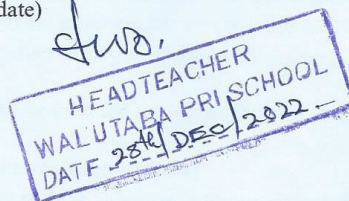 date)
HEADTEACHER
WALUTABA PRI SCHOOL
DATE 28th/DEC/2022